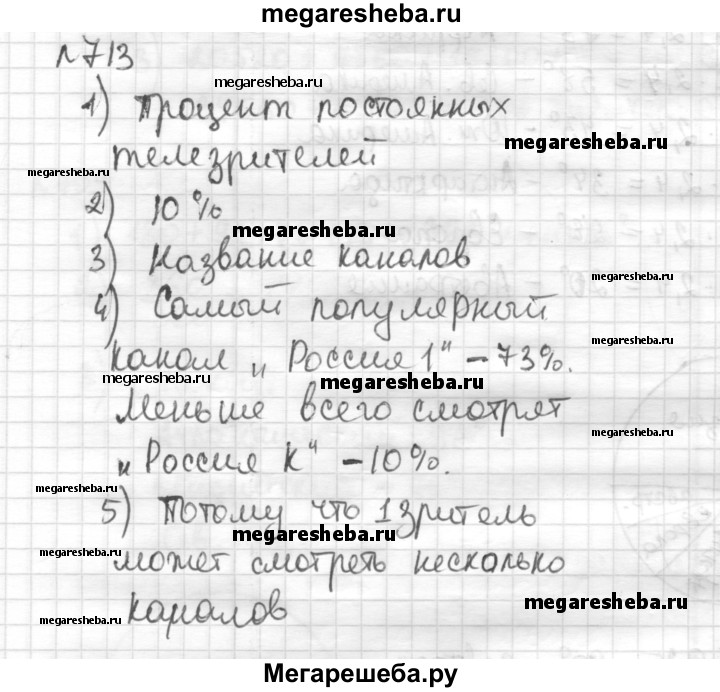 megaresheba.ru
№713
megaresheba.ru
1) Процент постоянных
megaresheba.ru
телезрителей
megaresheba.ru
2) 10%
megaresheba.ru
3) Название каналов
megaresheba.ru
4) Самый популярный
канал „Россия 1" – 73%.
megaresheba.ru
megaresheba.ru
Меньше всего смотрят
megaresheba.ru
„Россия К" – 10%.
megaresheba.ru
5) Потому что 1 зритель
megaresheba.ru
megaresheba.ru
может смотреть несколько
каналов
megaresheba.ru
megaresheba.ru
Мегарешеба.ру